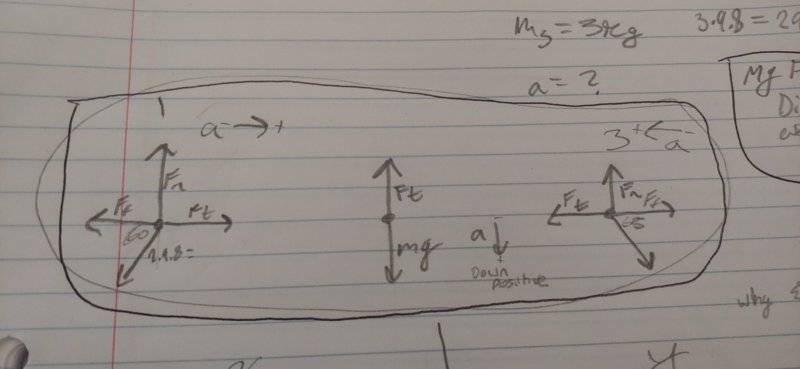 m3 = 3kg
3·9.8 = 29
a = ?
Mg F
Di
1
a - → +
3 + ← a -
Fn
Ff
Ft
60
2·9.8=
Ft
mg
a
+
Down
positive
Ft
Fn
Ff
65
why